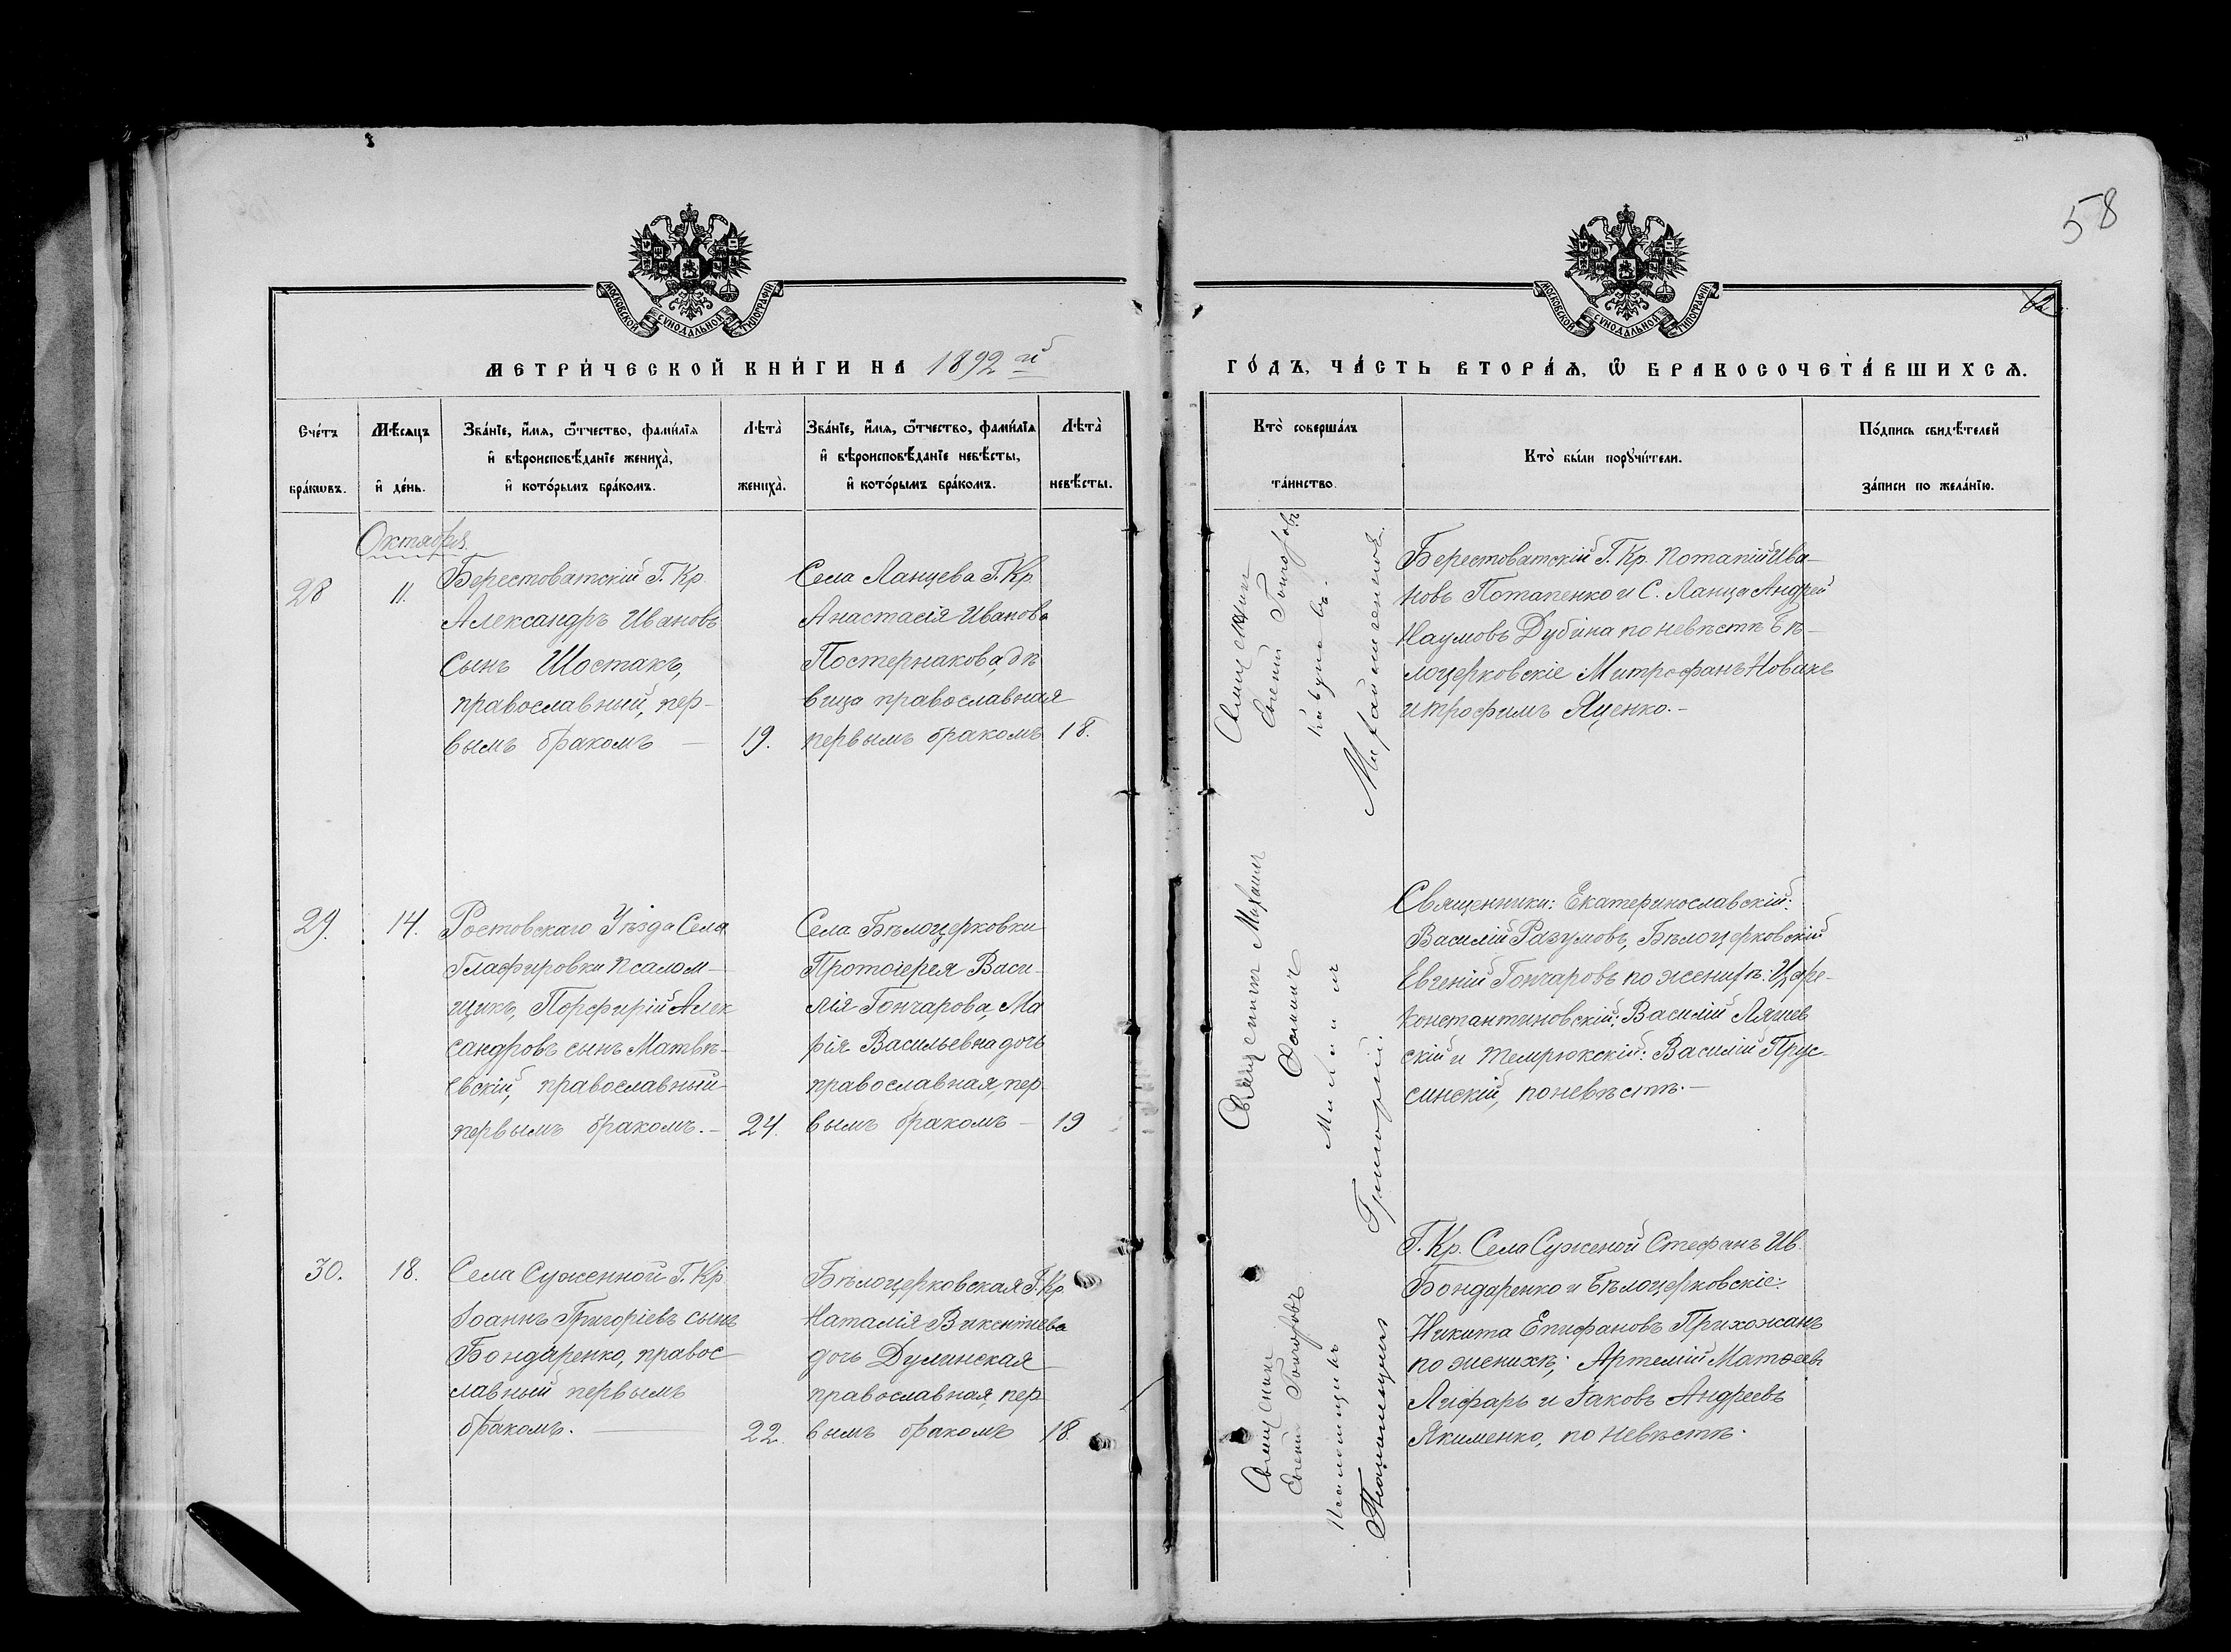 58
МОСКОВСКОЙ СѴНОДАЛЬНОЙ ТИПОГРАФІИ
МОСКОВСКОЙ СѴНОДАЛЬНОЙ ТИПОГРАФІИ
МЕТРИ́ЧЕСКОЙ КНИ́ГИ НА 1892 й
ГО́ДЪ, ЧА́СТЬ ВТОРА́Ѧ, Ѽ БРАКОСОЧЕТА́ВШИХСѦ.
Сче́тъ бра́кѡвъ.
Мѣ́сѧцъ и҆ де́нь.
Зва́нїе, и҆́мѧ, ѻ҆́тчество, фами́лїѧ
и҆ вѣроисповѣ́данїе жениха̀,
и҆ кото́рымъ бра́комъ.
Лѣта̀ жениха̀.
Зва́нїе, и҆́мѧ, ѻ҆́тчество, фами́лїѧ
и҆ вѣроисповѣ́данїе невѣ́сты,
и҆ кото́рымъ бра́комъ.
Лѣта̀ невѣ́сты.
Кто̀ соверша́лъ та́инство.
Кто̀ бы́ли порꙋчи́тели.
По́дпись свидѣ́телей за́писи по жела́нїю.
Октября.
28
11.
Берестоватскій Г. Кр.
Александръ Ивановъ
сынъ Шостакъ,
православный, пер-
вымъ бракомъ —
19.
Села Ланцева Г. Кр.
Анастасія Иванова
Постернакова, дѣ
вица православная
первымъ бракомъ
18.
Священникъ
Евгеній Гончаровъ
Берестоватскій Г. Кр. Потапій Ива-
новъ Потапенко и С. Ланце Андрей
Наумовъ Дубина по невѣстѣ Бѣ-
лоцерковскіе Митрофанъ Новакъ
и Трофимъ Яценко.-
29.
14.
Ростовскаго Уѣзда Села
Глафировки Псалом-
щикъ, Порфирій Алек
сандровъ сынъ Матвѣ-
евскій, православный
первымъ бракомъ.-
24.
Села Бѣлоцерковки
Протоіерея Васи-
лія Гончарова, Ма
рія Васильевна дочь
православная, пер
вымъ бракомъ -
19
Священникъ Михаилъ
Григорій
Священники: Екатеринославскій:
Василій Разумовъ, Бѣлоцерковскій
Евгеній Гончаровъ по женихѣ: Царе-
константиновскій: Василій Лящев
скій и Темрюкскій: Василій Прус-
синскій, по невѣстѣ.-
30.
18.
Села Суженной Г. Кр.
Іоаннъ Григоріевъ сынъ
Бондаренко, правос
славный первымъ
бракомъ. —
22.
Бѣлоцерковская Г. Кр.
Наталія Викентиева
дочь Дулинская
православная, пер
вымъ бракомъ
18.
Священникъ
Евгеній Гончаровъ
Псаломщикъ
Г. Кр. Села Суженой Стефанъ Ив.
Бондаренко и Бѣлоцерковскіе:
Никита Епифановъ Прихожанъ
по женихѣ; Артемій Матѳеевъ
Лифарь и Іаковъ Андреевъ
Якименко, по невѣстѣ.